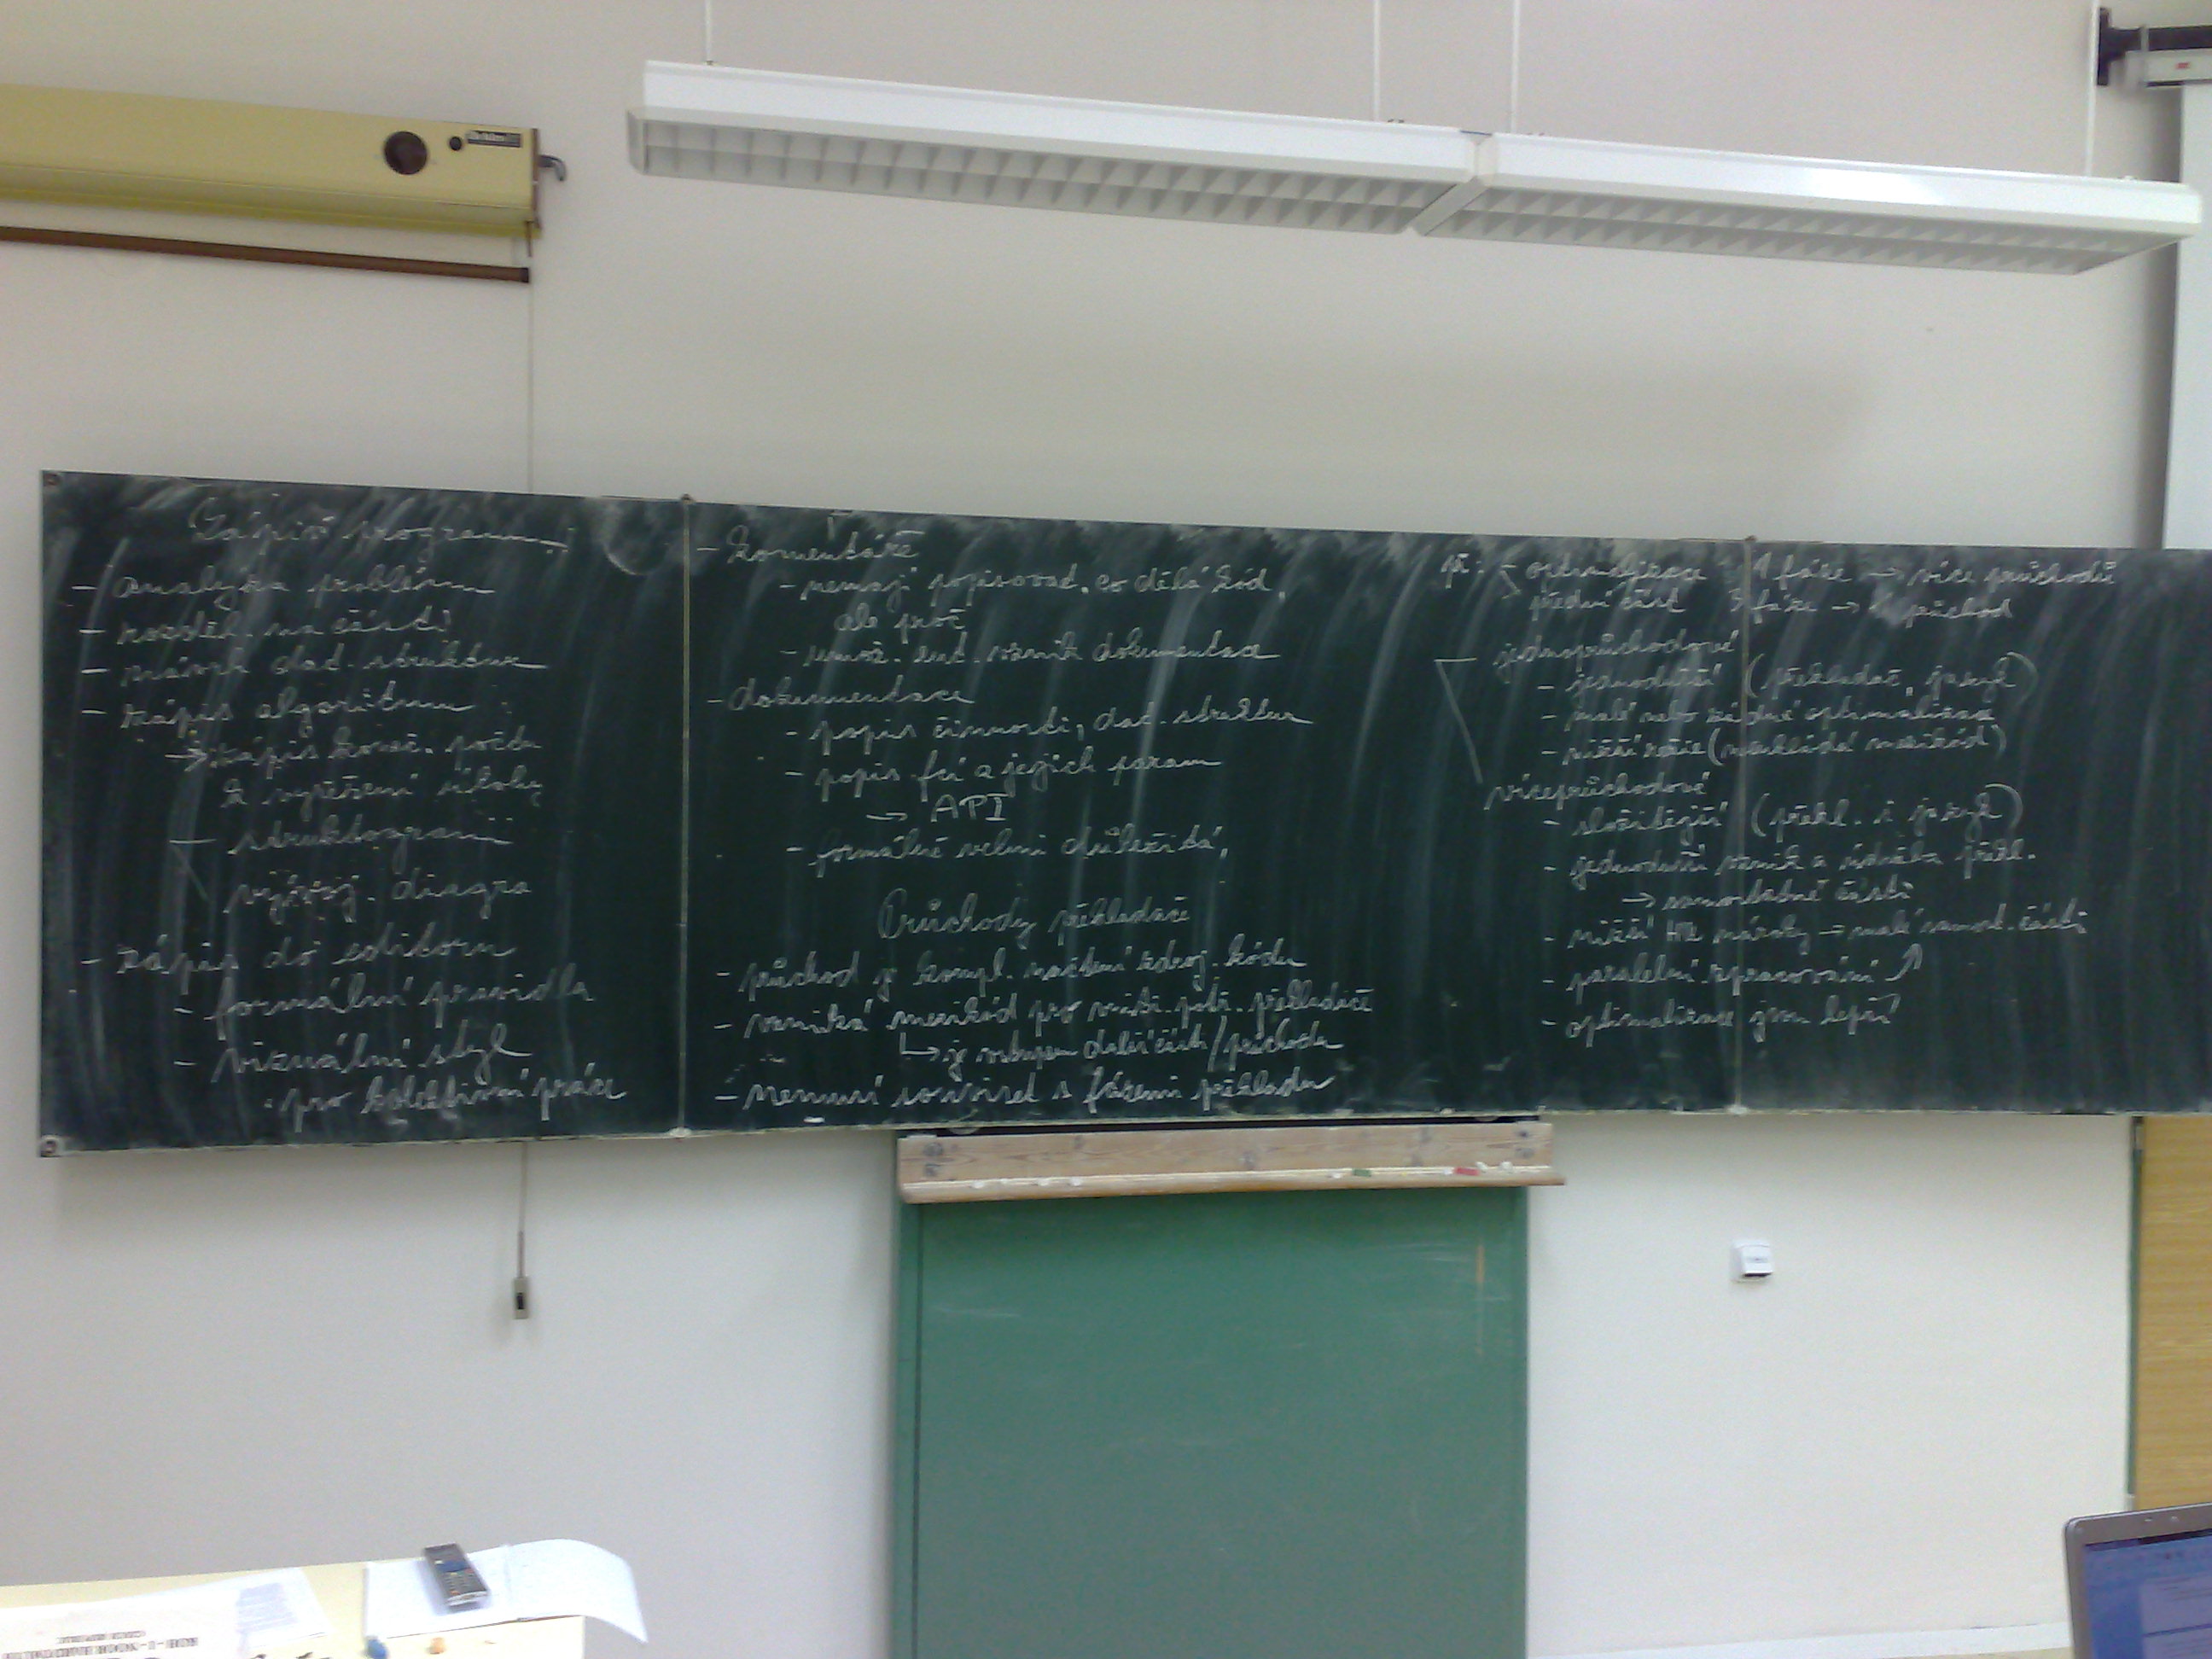 Zápis programu
- analýza problému
- rozděl. na části
- návrh dat. struktur
- zápis algoritmu
→ zápis koneč. počtu
k vyřešení úlohy
struktogram
vývoj. diagra
- zápis do editoru
- formální pravidla
- vizuální styl
pro kolektivní práce
- komentáře
- nemají popisovat, co dělá kód,
ale proč
- umož. aut. vznik dokumentace
- dokumentace
- popis činnosti, dat. struktur
- popis fcí a jejich param
→ API
- formálně velmi důležitá,
Průchody překladače
- průchod je kompl. načtení zdroj. kódu
- vzniká mezikód pro vnitř. potř. překladače
↳ je vstupem dalších částí/průchodu
- nemusí souviset s fázemi překladu
př: - optimalizace 1 fáze → více průchodů
přední část 3 fáze → průchod
jednoprůchodové
- jednodušší (překladač, jazyk)
- malé nebo žádné optimalizace
- nižší režie (neukládá mezikód)
víceprůchodové
- složitější (překl. i jazyk)
- jednodušší vznik a údržba překl.
→ samostatné části
- nižší HW nároky → malé samost. části
- paralelní zpracování
- optimalizace jsou lepší